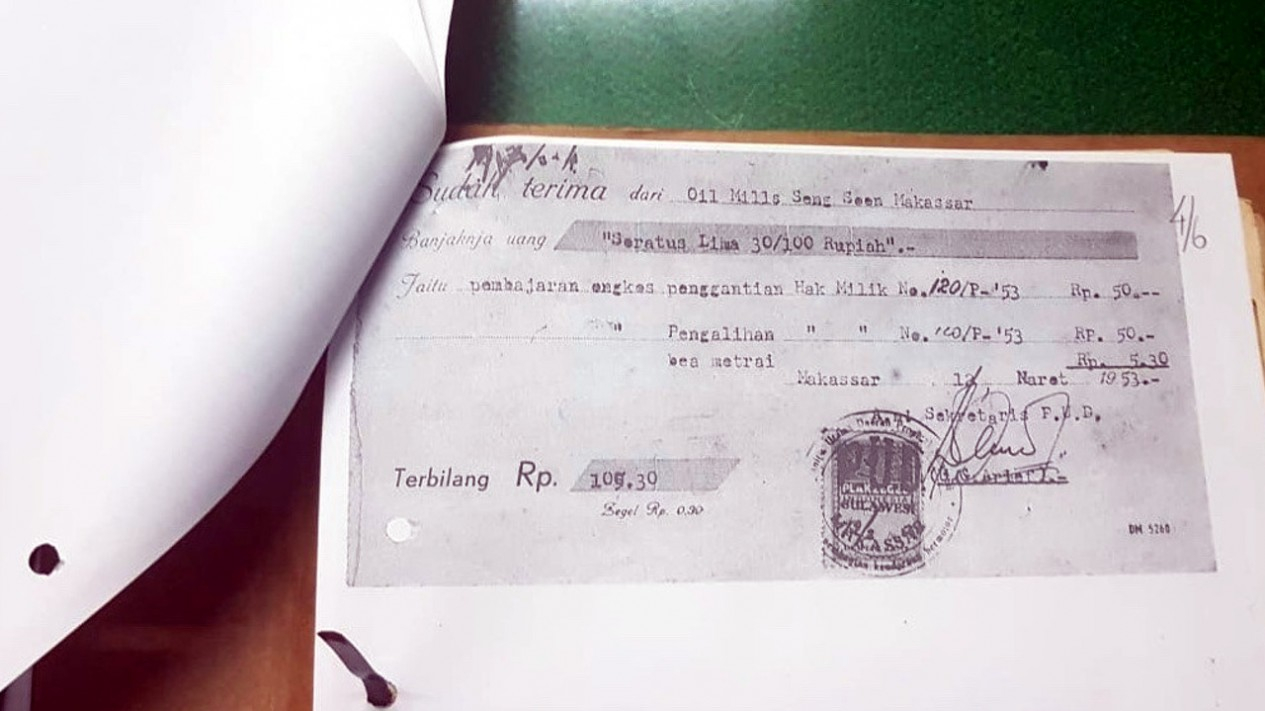 Sudah terima dari Oil Mills Seng Seen Makassar
4/6
Banjaknja uang "Seratus Lima 30/100 Rupiah".-
Jaitu pembajaran ongkos penggantian Hak Milik No. 120/P-'53 Rp. 50.--
" Pengalihan " " No. 120/P-'53 RP. 50.-
bea metrai Rp. 5.30
Makassar 12 Maret 1953.-
Sekretaris
Terbilang Rp. 105.30
Segel Rp. 0,30
PLAKZEGEL
INDONESIA
SULAWESI
MAKASSAR
DM 5260